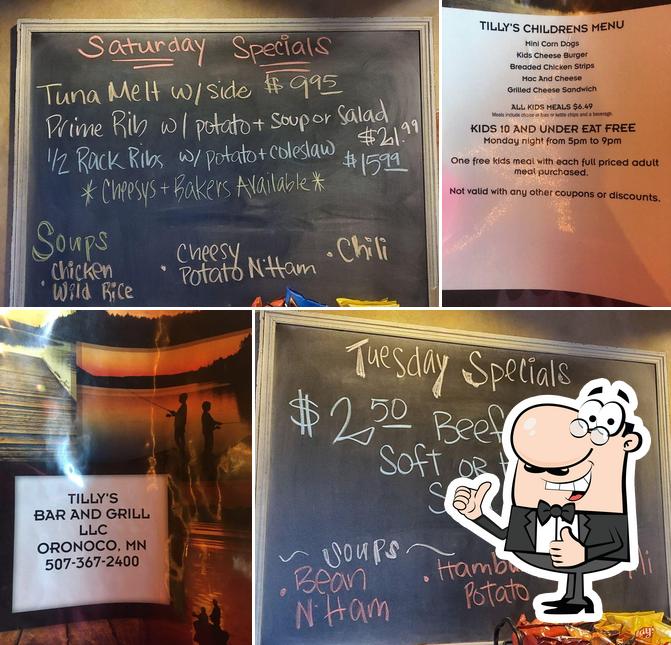 Saturday Specials
Tuna Melt w/side $9.95
Prime Rib w/ potato + soup or Salad
$21.99
1/2 Rack Ribs w/ potato + coleslaw $15.99
*Cheesys + Bakers Available*
Soups
· Chicken
Wild Rice
· Cheesy
Potato N' Ham
· Chili
TILLY'S CHILDRENS MENU
Mini Corn Dogs
Kids Cheese Burger
Breaded Chicken Strips
Mac And Cheese
Grilled Cheese Sandwich
ALL KIDS MEALS $6.49
Meals include choice of fries or kettle chips and a beverage.
KIDS 10 AND UNDER EAT FREE
Monday night from 5pm to 9pm
One free kids meal with each full priced adult
meal purchased.
Not valid with any other coupons or discounts.
TILLY'S
BAR AND GRILL
LLC
ORONOCO, MN
507-367-2400
Tuesday Specials
$2.50 Beef
Soft or
~ Soups ~
· Bean
N' Ham
· Hambu
Potato